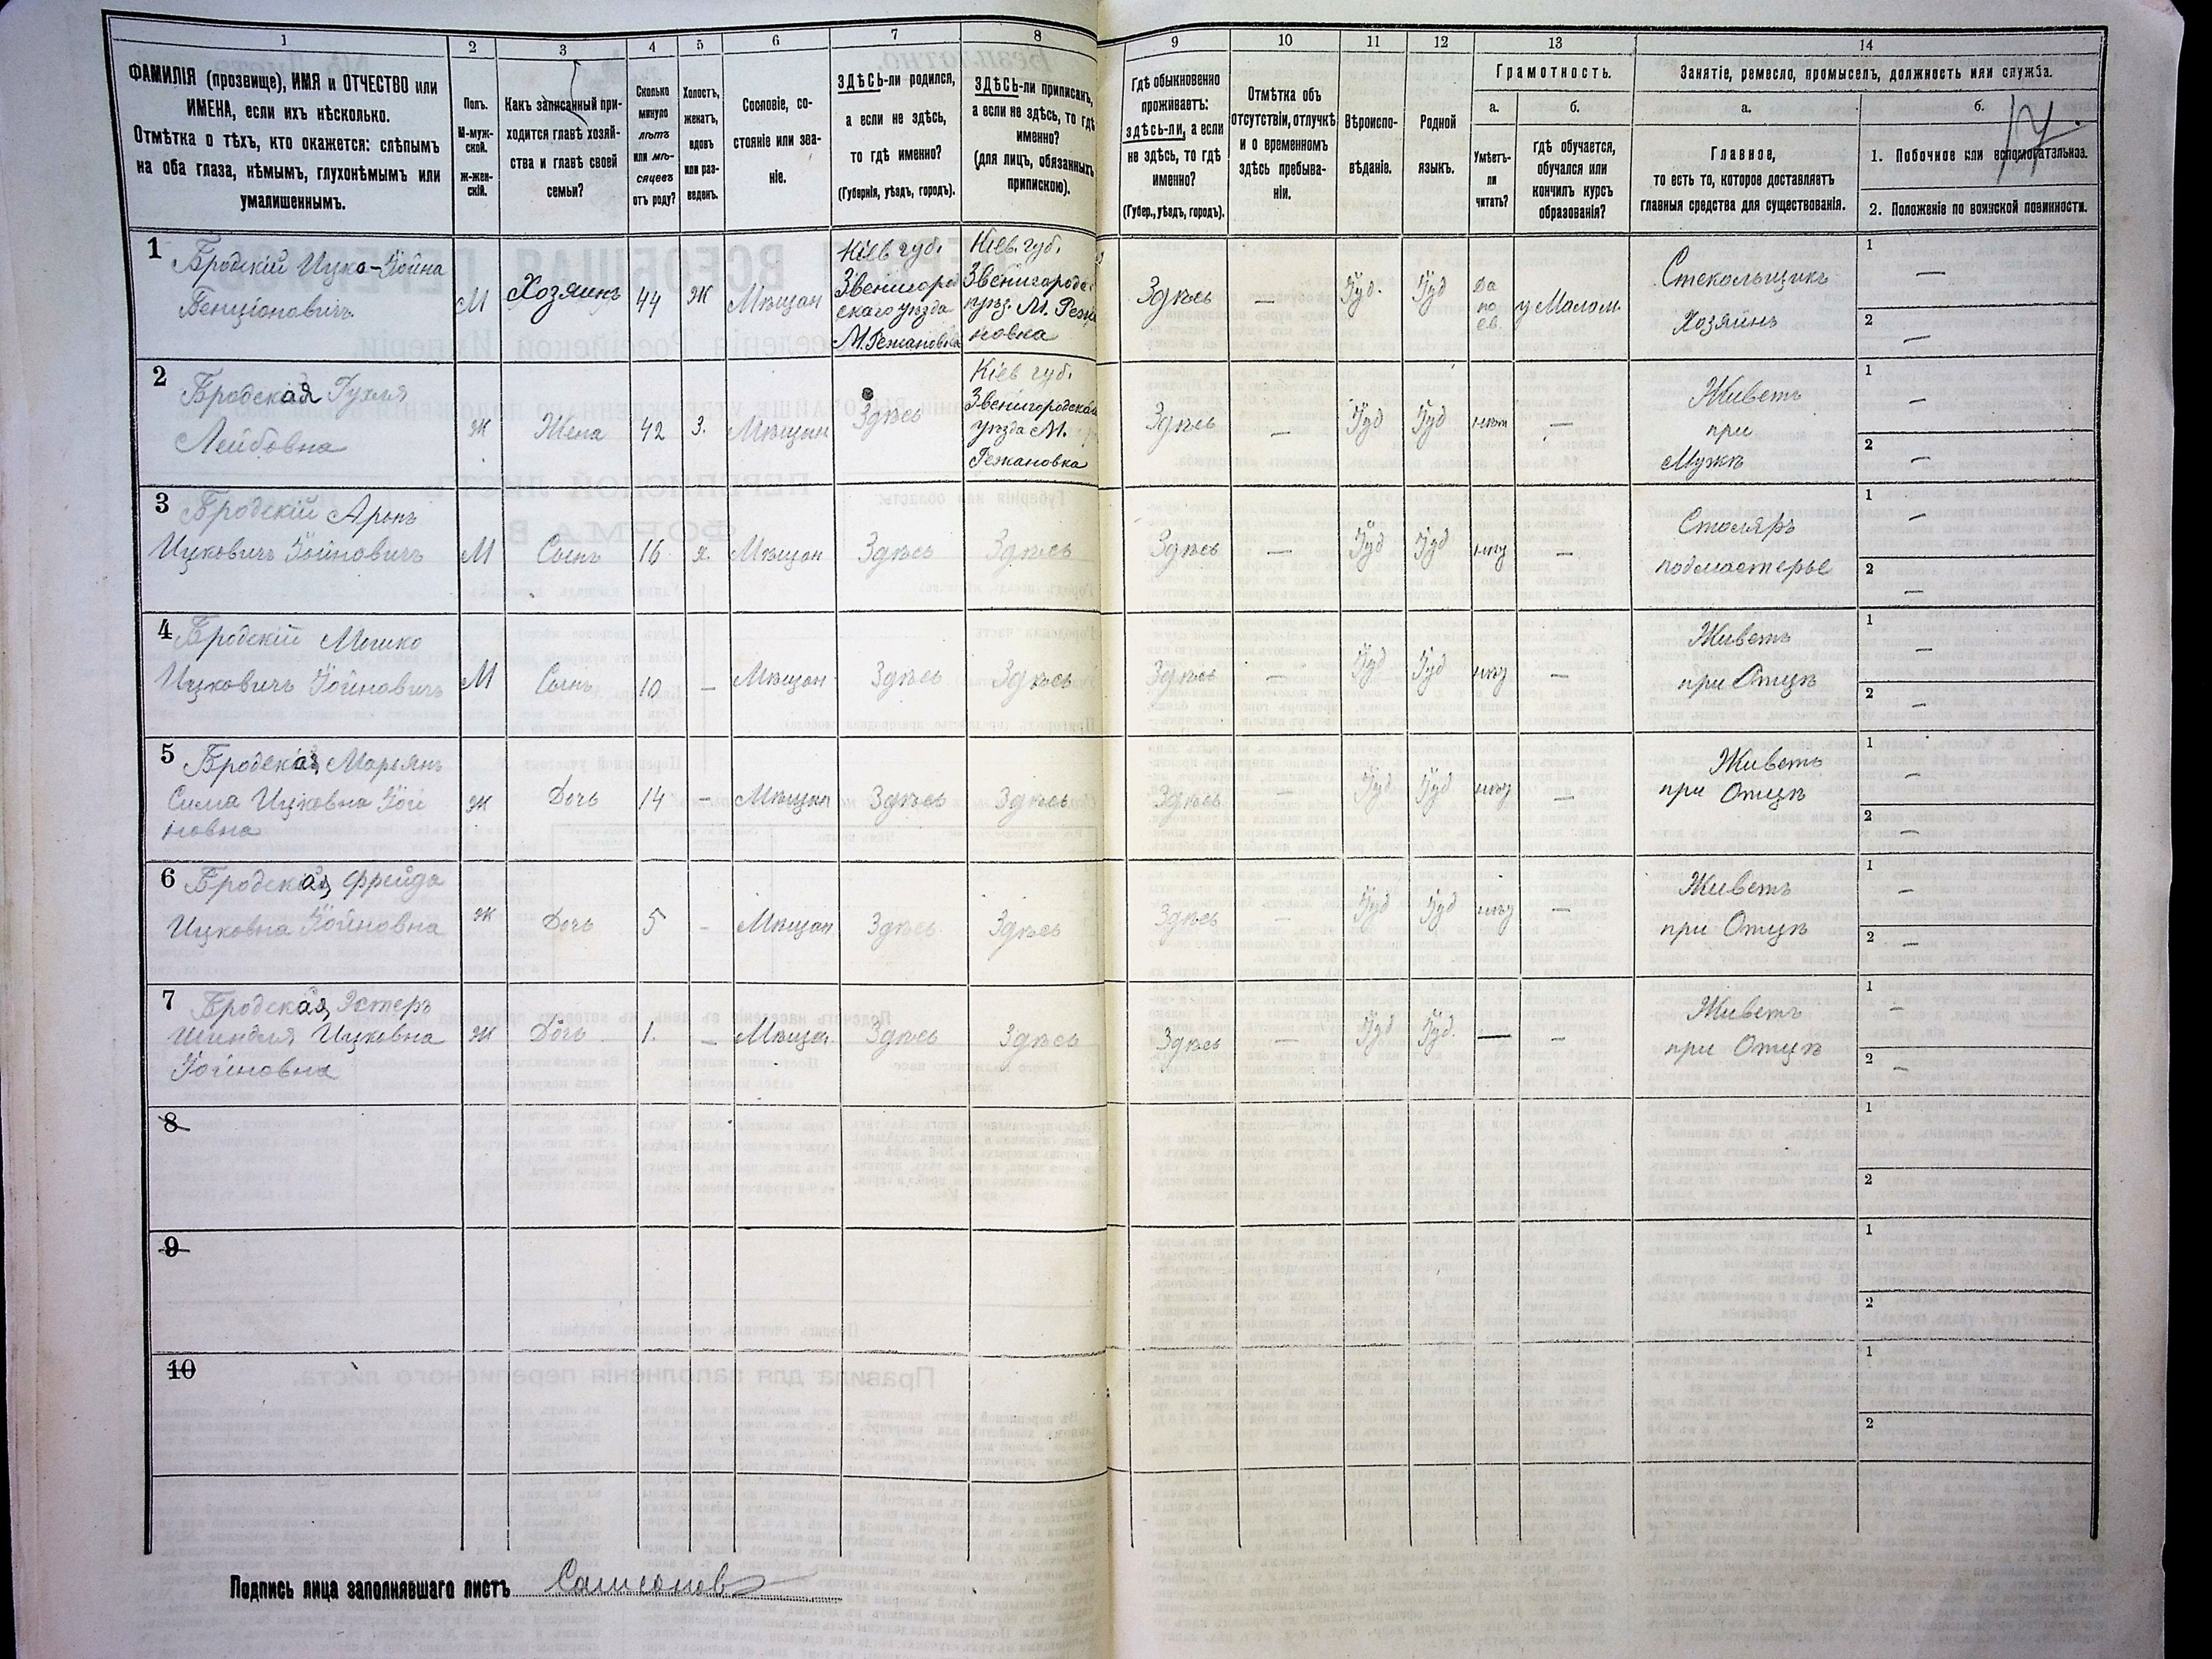 1
2
3
4
5
6
7
8
9
10
11
12
13
14
ФАМИЛІЯ (прозвище), ИМЯ и ОТЧЕСТВО или
ИМЕНА, если ихъ нѣсколько.
Отмѣтка о тѣхъ, кто окажется: слѣпымъ
на оба глаза, нѣмымъ, глухонѣмымъ или
умалишеннымъ.
Полъ.
М-муж-
ской.
ж-жен-
скій.
Какъ записанный при-
ходится главѣ хозяй-
ства и главѣ своей
семьи?
Сколько
минуло
лѣтъ
или мѣ-
сяцевъ
отъ роду?
Холостъ,
женатъ,
вдовъ
или раз-
веденъ.
Сословіе, со-
стояніе или зва-
ніе.
ЗДѢСЬ-ли родился,
а если не здѣсь,
то гдѣ именно?
(Губернія, уѣздъ, городъ).
ЗДѢСЬ-ли приписанъ,
а если не здѣсь, то гдѣ
именно?
(для лицъ, обязанныхъ
припискою).
Гдѣ обыкновенно
проживаетъ:
здѣсь-ли, а если
не здѣсь, то гдѣ
именно?
(Губер., уѣздъ, городъ).
Отмѣтка объ
отсутствіи, отлучкѣ
и о временномъ
здѣсь пребыва-
ніи.
Вѣроиспо-
вѣданіе.
Родной
языкъ.
Грамотность.
а.
б.
Умѣетъ-
ли
читать?
гдѣ обучается,
обучался или
кончилъ курсъ
образованія?
Занятіе, ремесло, промыселъ, должность или служба.
а.
б.
17
Главное,
то есть то, которое доставляетъ
главныя средства для существованія.
1. Побочное или вспомогательное.
2. Положеніе по воинской повинности.
1
Бродскій Ицко-Іойна
Бенціоновичъ
М
Хозяинъ
44
Ж
Мѣщан
Кіев губ.
Звенигород
скаго уѣзда
М. Режановка
Кіев. губ.
Звенигородс.
уѣзд. М. Режа
новка
Здѣсь
—
Іуд.
Іуд
да
по
ев.
у Малам.
Стекольщикъ
Хозяинъ
1
—
2
—
2
Бродская Рухля
Лейбовна
Ж
Жена
42
З.
Мѣщан
Здѣсь
Кіев губ.
Звенигородскаго
уѣзда М.
Режановка
Здѣсь
—
Іуд
Іуд
нѣт
—
Живетъ
при
Мужѣ
1
—
2
—
3
Бродскій Аронъ
Ицковичъ Іойновичъ
М
Сынъ
16
х.
Мѣщан
Здѣсь
Здѣсь
Здѣсь
—
Іуд
Іуд
—
Столяръ
подмастерье
1
—
2
—
4
Бродскій Мошко
Ицковичъ Іойновичъ
М
Сынъ
10
—
Мѣщан
Здѣсь
Здѣсь
Здѣсь
—
Іуд
Іуд
—
Живетъ
при Отцѣ
1
—
2
—
5
Бродская Марьянъ
Сима Ицковна Іой
новна
Ж
Дочь
14
—
Мѣщан
Здѣсь
Здѣсь
Здѣсь
—
Іуд
Іуд
—
Живетъ
при Отцѣ
1
—
2
—
6
Бродская Фрейда
Ицковна Іойновна
Ж
Дочь
5
—
Мѣщан
Здѣсь
Здѣсь
Здѣсь
—
Іуд
Іуд
—
Живетъ
при Отцѣ
1
—
2
—
7
Бродская Эстеръ
Шиндля Ицковна
Іойновна
Ж
Дочь
1.
—
Мѣщан
Здѣсь
Здѣсь
Здѣсь
—
Іуд
Іуд.
—
—
Живетъ
при Отцѣ
1
—
2
—
8
1
2
9
1
2
10
1
2
Подпись лица заполнявшаго листъ